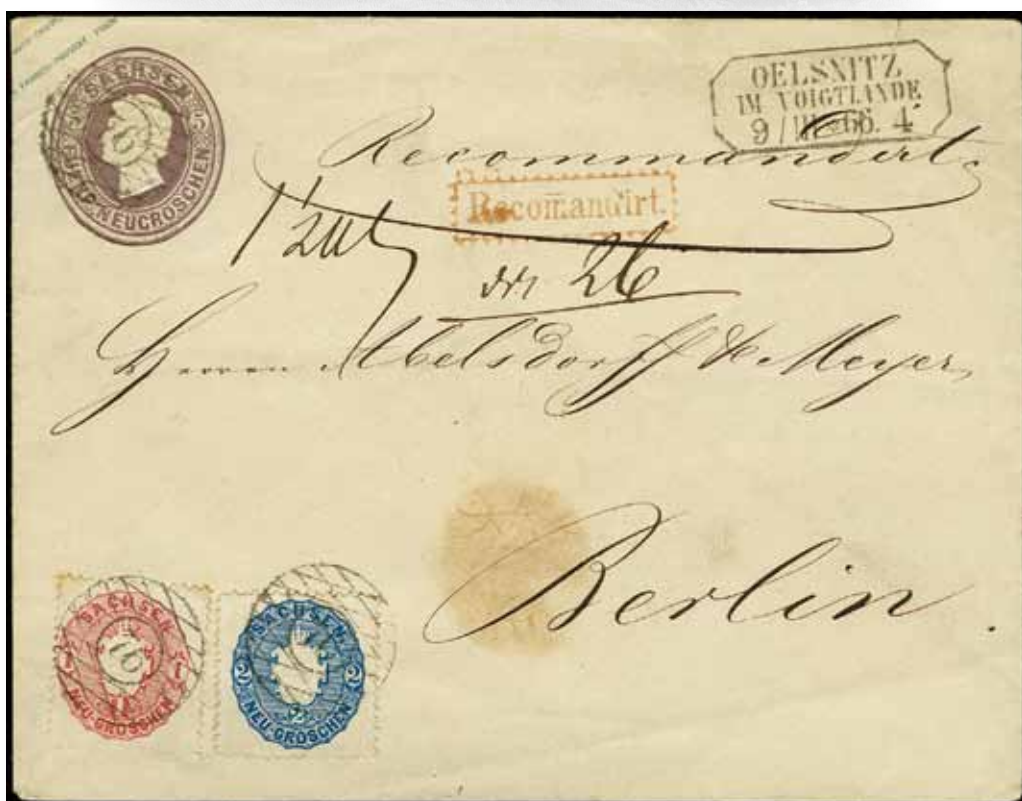 SACHSEN
5 FÜNF NEUGROSCHEN 5
OELSNITZ
IM VOIGTLANDE
9 / III 66. 4
Recommandert
Recomandirt.
26
Herren Abelsdorff & Meyer,
Berlin.
SACHSEN
1 1
NEU-GROSCHEN
SACHSEN
2 2
2
NEU-GROSCHEN